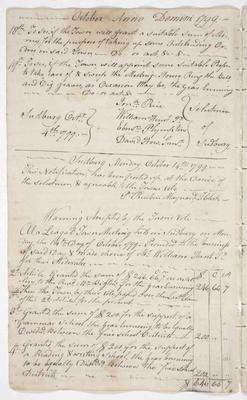 October Anno Domini 1799
18th To see if the Town will grant a suitable Sum of Mo-
ney for the purpose of taking up some Outstanding Or-
ders in said Town — Do or act &c —
19th To see if the Town will appoint some Suitable Person
to take care of & Sweep the Meeting House Ring the Bell
and Dig Graves, as Occasion may be, the year Ensuing
— Do or act —
Sudbury Octr.
4th 1799
Jonn. Rice
William Hunt
Ebenr. Plympton
David How Junr.
Selectmen
of
Sudbury
Sudbury Monday October 14th 1799
This Notification has been posted up, at the Desire of
the Selectmen, & agreeable to the Town Vote
Pr. Reuben Maynard
Warning Accepted by the Town Vote
At a Legal Town Meeting held in Sudbury on Mon-
day the 14th Day of October 1799.
of said Day, & made choice of Mr. William Hunt
their Moderator
2d. Article Granted the Sum of
for the present
3d. Granted the Sum of $200 for the Support of a
Grammar School the year Ensuing to be Equally
Divided between the five School Districts 200
4th. Granted the Sum of $200 for the Support of
a Reading & writing School, the year Ensuing
to be equally Divided Between the five School
Districts 200
$ 646 66 7